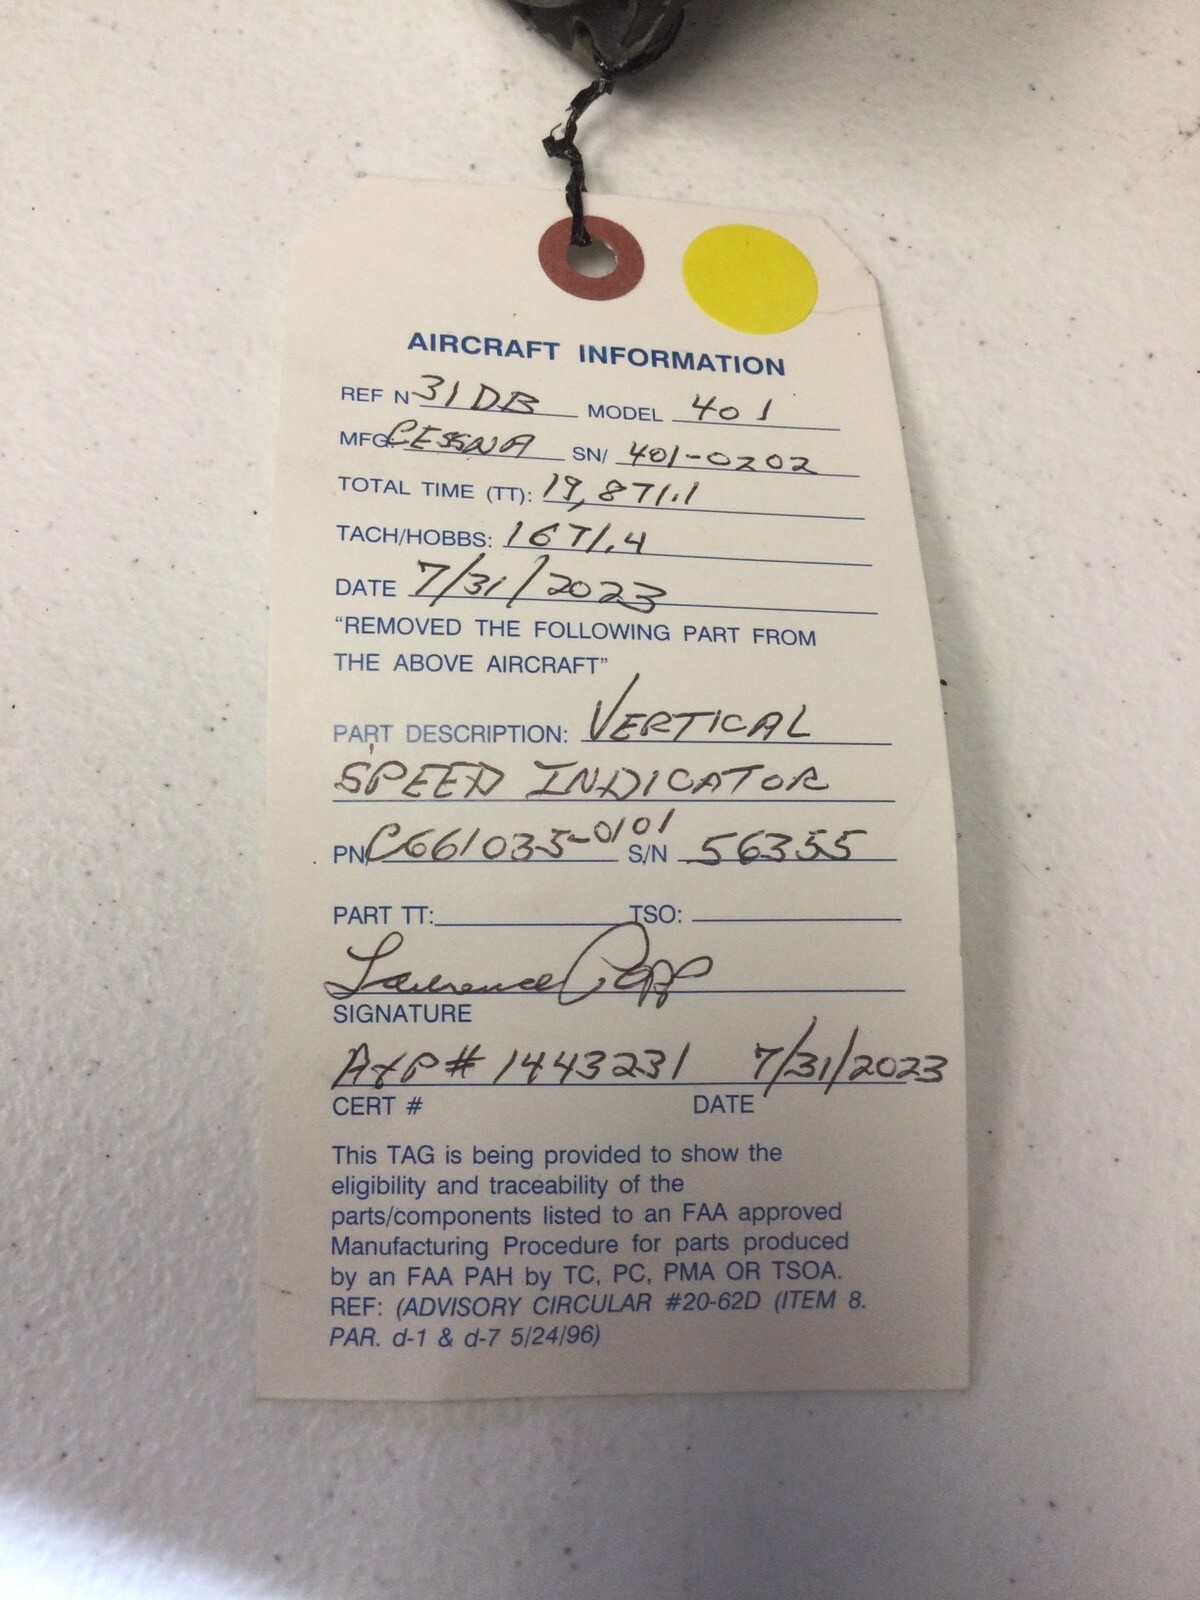 AIRCRAFT INFORMATION
REF N 31DB MODEL 401
MFG: CESSNA SN/ 401-0202
TOTAL TIME (TT): 19,871.1
TACH/HOBBS: 1671.4
DATE 7/31/2023
"REMOVED THE FOLLOWING PART FROM
THE ABOVE AIRCRAFT"
PART DESCRIPTION: VERTICAL
SPEED INDICATOR
PN C661035-0101 S/N 56355
PART TT: TSO:
Lawrence
SIGNATURE
A&P# 1443231 7/31/2023
CERT # DATE
This TAG is being provided to show the
eligibility and traceability of the
parts/components listed to an FAA approved
Manufacturing Procedure for parts produced
by an FAA PAH by TC, PC, PMA OR TSOA.
REF: (ADVISORY CIRCULAR #20-62D (ITEM 8.
PAR. d-1 & d-7 5/24/96)